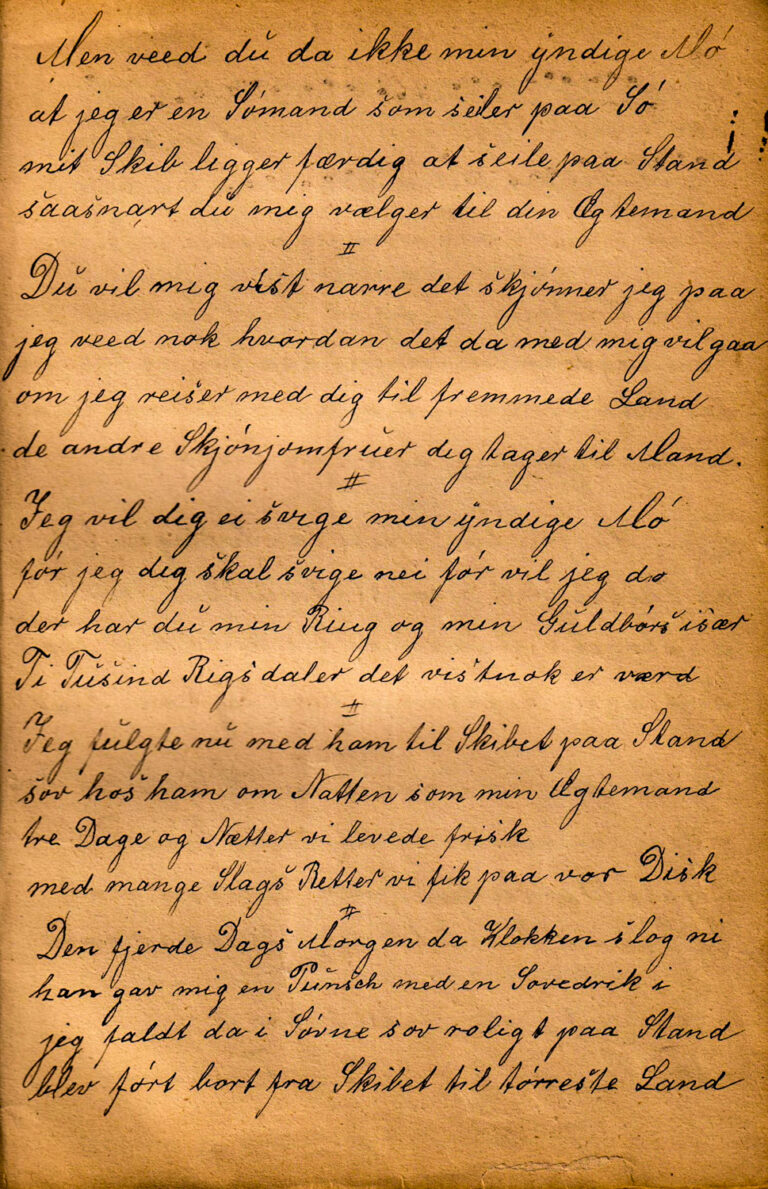 Men veed du da ikke min yndige Mó
at jeg er en Sómand som seiler paa Só
mit Skib ligger færdig at seile paa Stand
saasnart du mig vælger til din Ægtemand
II
Du vil mig vist narre det skjónner jeg paa
jeg veed nok hvordan det da med mig vil gaa
om jeg reiser med dig til fremmede Land
de andre Skjónjomfruer dig tager til Mand.
II
Jeg vil dig ei svige min yndige Mó
fór jeg dig skal svige nei fór vil jeg dø
der har du min Ring og min Guldbórs især
Ti Tusind Rigsdaler det vistnok er værd
II
Jeg fulgte nu med ham til Skibet paa Stand
sov hos ham om Natten som min Ægtemand
tre Dage og Nætter vi levede frisk
med mange Slags Retter vi fik paa vor Disk
II
Den fjerde Dags Morgen da Klokken slog ni
han gav mig en Punsch med en Sovedrik i
jeg faldt da i Sóvne sov roligt paa Stand
blev fórt bort fra Skibet til tórreste Land